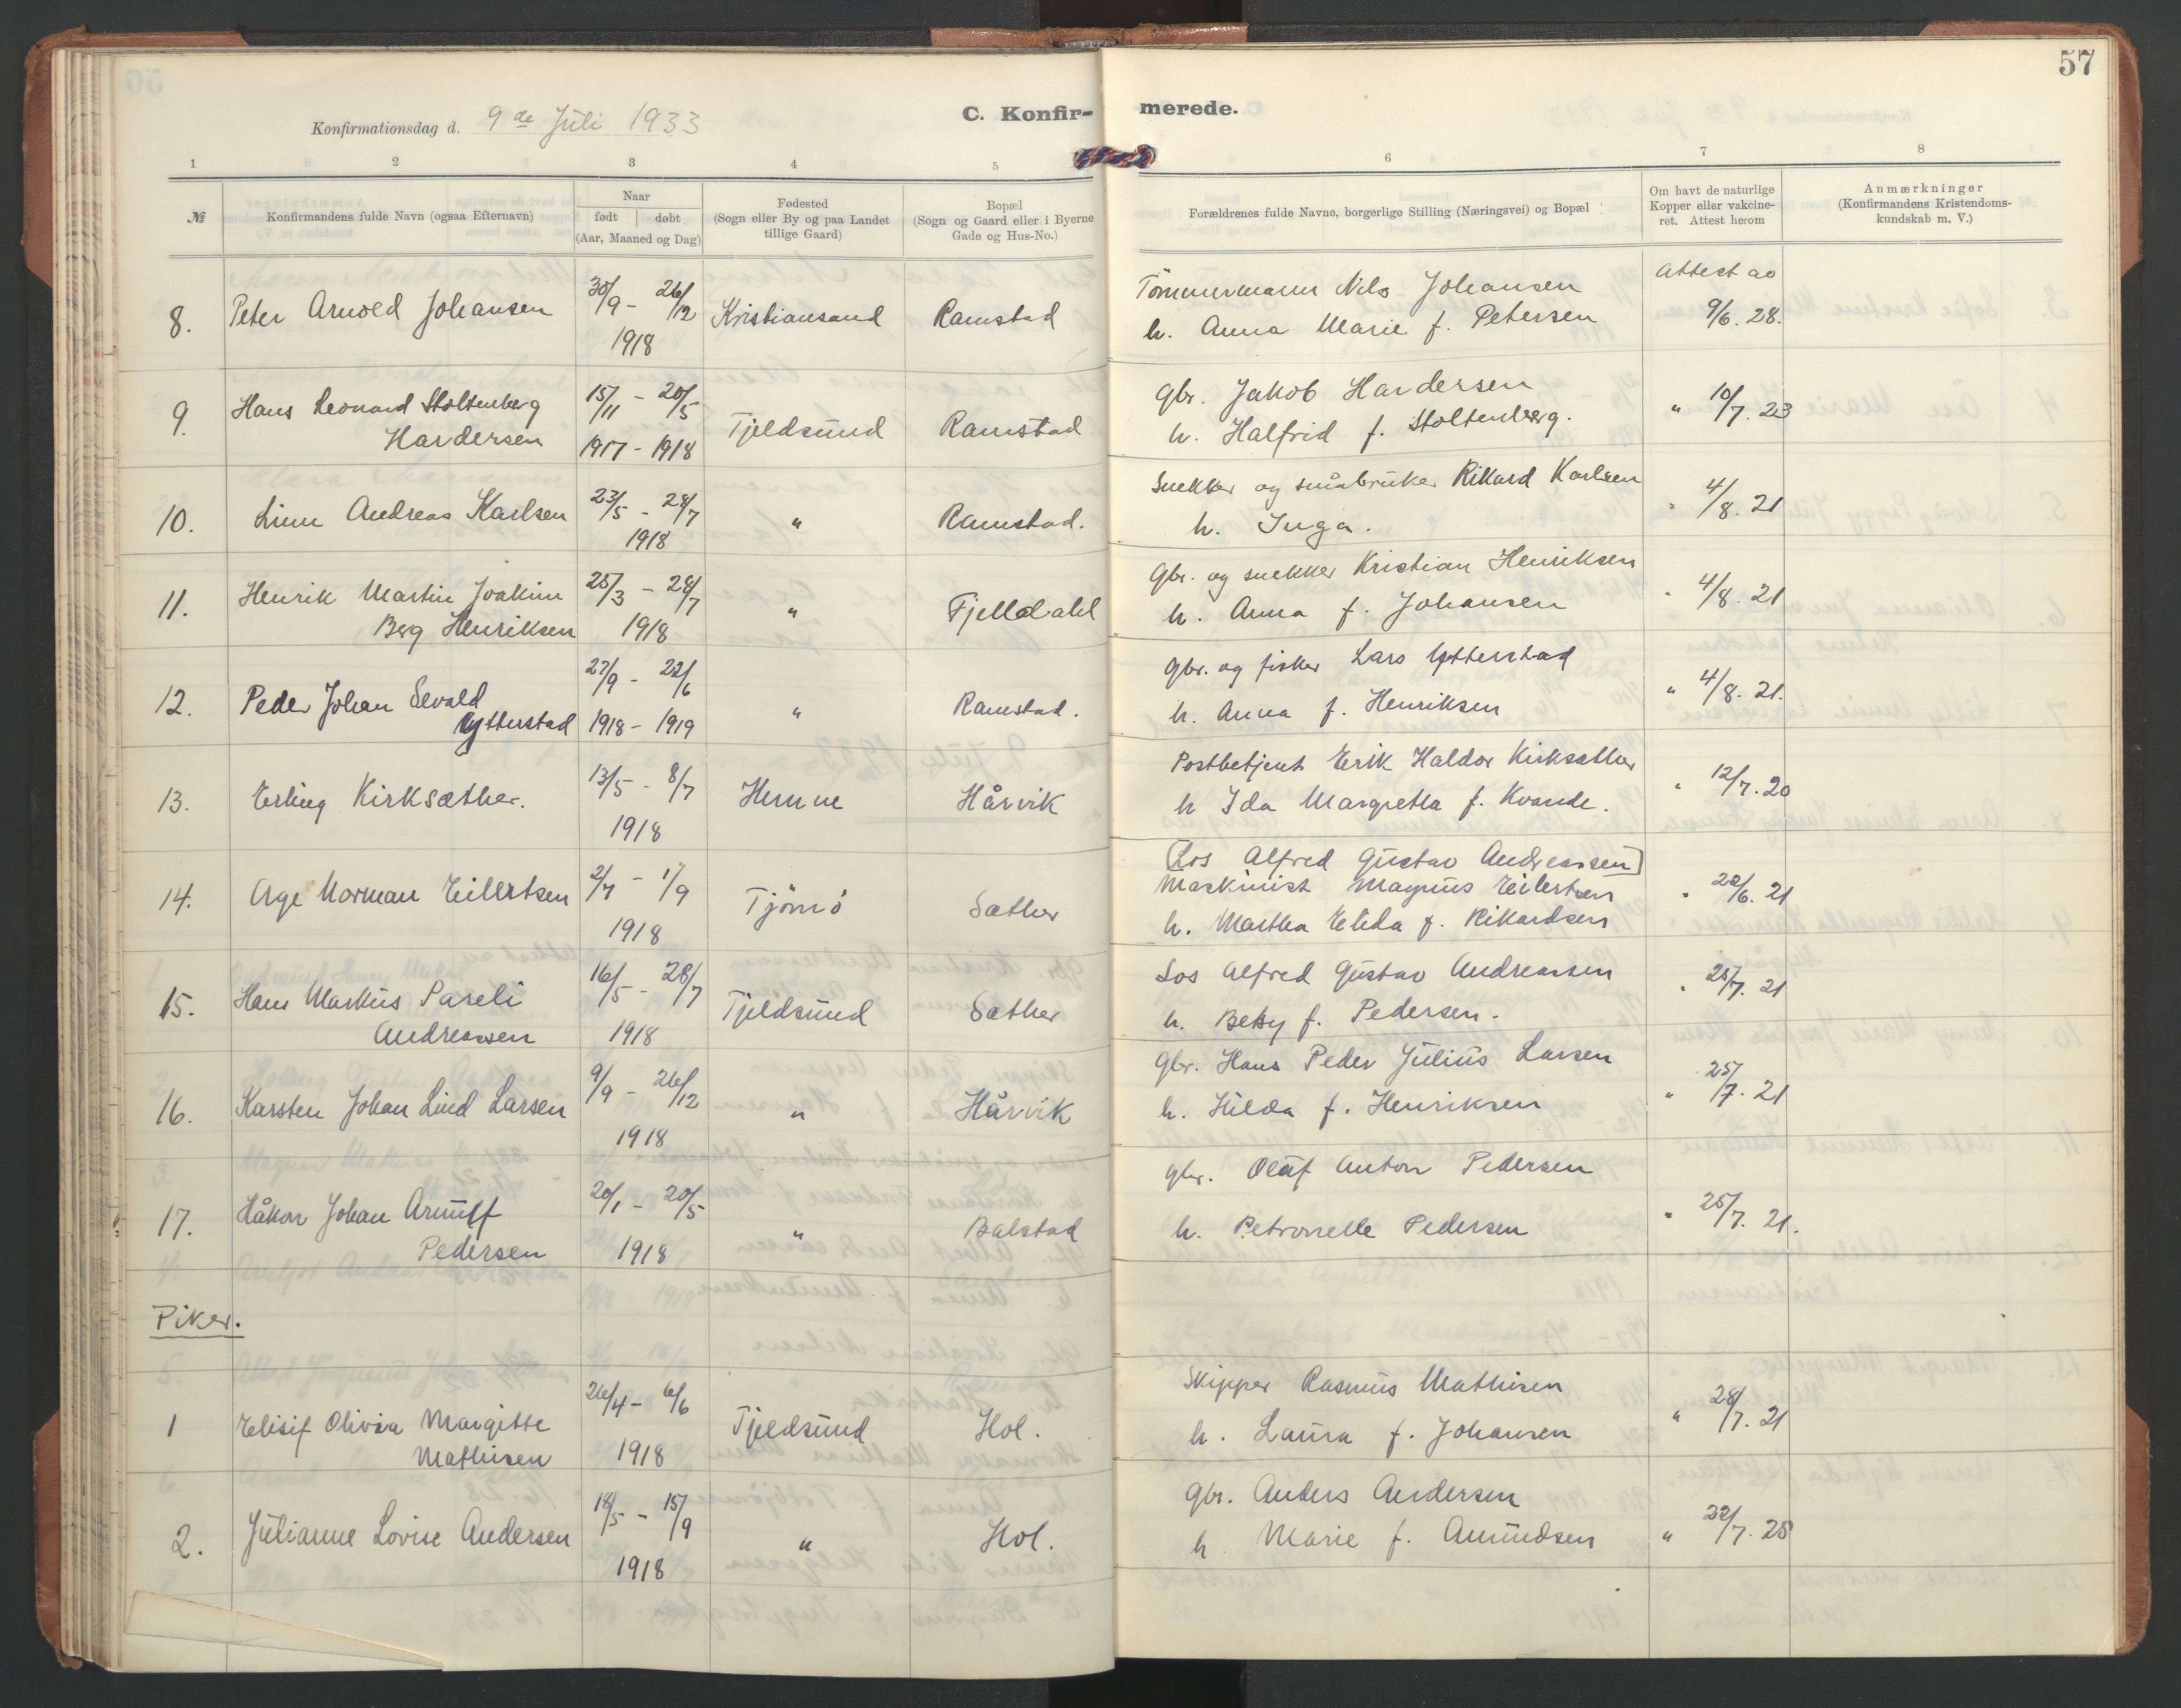 57
Konfirmationsdag d. 9de Juli 1933
C. Konfir-
merede.
1 2 3 4 5 6 7 8
№
Konfirmandens fulde Navn (ogsaa Efternavn)
Naar
født døbt
(Aar, Maaned og Dag)
Fødested
(Sogn eller By og paa Landet
tillige Gaard)
Bopæl
(Sogn og Gaard eller i Byerne
Gade og Hus-No.)
Forældrenes fulde Navne, borgerlige Stilling (Næringsvei) og Bopæl
Om havt de naturlige
Kopper eller vakcine-
ret. Attest herom
Anmærkninger
(Konfirmandens Kristendoms-
kundskab m. V.)
8. Peter Arnold Johansen 30/9 - 26/12 1918 Kristiansand Ramstad
Tömmermann Nils Johansen
h. Anna Marie f. Petersen
Attest av
9/6. 28.
9. Hans Leonard Stoltenberg
Hardersen
15/11 - 20/5
1917 - 1918
Tjeldsund Ramstad
Gbr. Jakob Hardersen
h. Halfrid f. Stoltenberg.
" 10/7. 23
10. Linn Andreas Karlsen 23/5 - 28/7 1918 " Ramstad.
Snekker og småbruker Rikard Karlsen
h. Inga.
" 4/8. 21
11. Henrik Martin Joakim
Berg Henriksen
25/3 - 28/7
1918
" Fjelldahl
Gbr. og snekker Kristian Henriksen
h. Anna f. Johansen
" 4/8. 21
12. Peder Johan Sevald
Ytterstad
27/9 - 22/6
1918 - 1919
" Ramstad.
Gbr. og fisker Lars Ytterstad
h. Anna f. Henriksen
" 4/8. 21.
13. Erling Kirksæther. 13/5 - 8/7 1918 Hemne Hårvik
Postbetjent Erik Haldor Kirksæther
h Ida Margretha f. Kvande.
" 12/7. 20
14. Age Norman Eilertsen 2/7 - 1/9 1918 Tjömö Sæther
[Los Alfred Gustav Andreassen]
Maskinist Magnus Eilertsen
h. Martha Elida f. Rikardsen
" 22/6. 21
15. Hans Markus Pareli
Andreassen
16/5 - 28/7
1918
Tjeldsund Sæther
Los Alfred Gustav Andreassen
h. Betsy f. Pedersen.
" 25/7. 21
16. Karsten Johan Lind Larsen 9/9 - 26/12 1918 " Hårvik
Gbr. Hans Peder Julius Larsen
h. Hilda f. Henriksen
" 25/7. 21
17. Håkon Johan Arnulf
Pedersen
20/1 - 20/5
1918
" Balstad
Gbr. Oluf Anton Pedersen
h. Petronelle Pedersen
" 25/7. 21.
Piker.
1 Elisif Olivia Margitte
Mathisen
26/4 - 6/6
1918
Tjeldsund Hol.
Skipper Rasmus Mathisen
h. Laura f. Johansen
" 28/7. 21
2. Julianne Lovise Andersen 18/5 - 15/9 1918 " Hol.
Gbr. Anders Andersen
h Marie f. Amundsen
" 22/7. 25